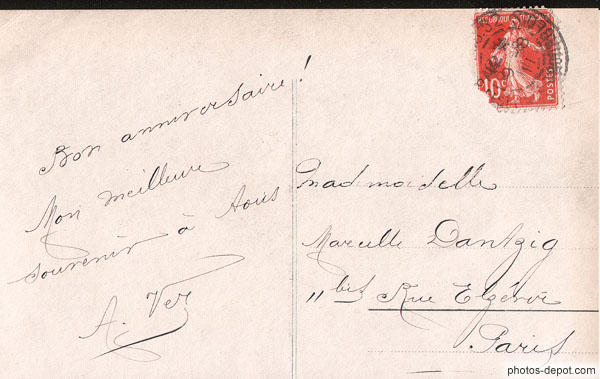 Bon anniversaire !
Mon meilleur
souvenir à tous
A. Ver
Mademoiselle
Marcelle Dantzig
11 bis Rue Elzévir
Paris
REPUBLIQUE FRANÇAISE
10c
POSTES
photos-depot.com